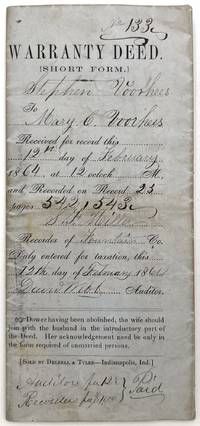 133
WARRANTY DEED.
[SHORT FORM.]
Stephen Voorhees
To
Mary C. Voorhees
Received for record this
12th day of February
1864 at 12 oclock M.
and Recorded on Record 23
pages 542, 543
Recorder of Fountain Co.
Duly entered for taxation, this
12th day of February 1864
Auditor.
Dower having been abolished, the wife should
join with the husband in the introductory part of
the Deed. Her acknowledgement need be only in
the form required of unmarried persons.
[SOLD BY DELZELL & TYLER—Indianapolis, Ind.]
Auditors fee
Paid
Recorders fee